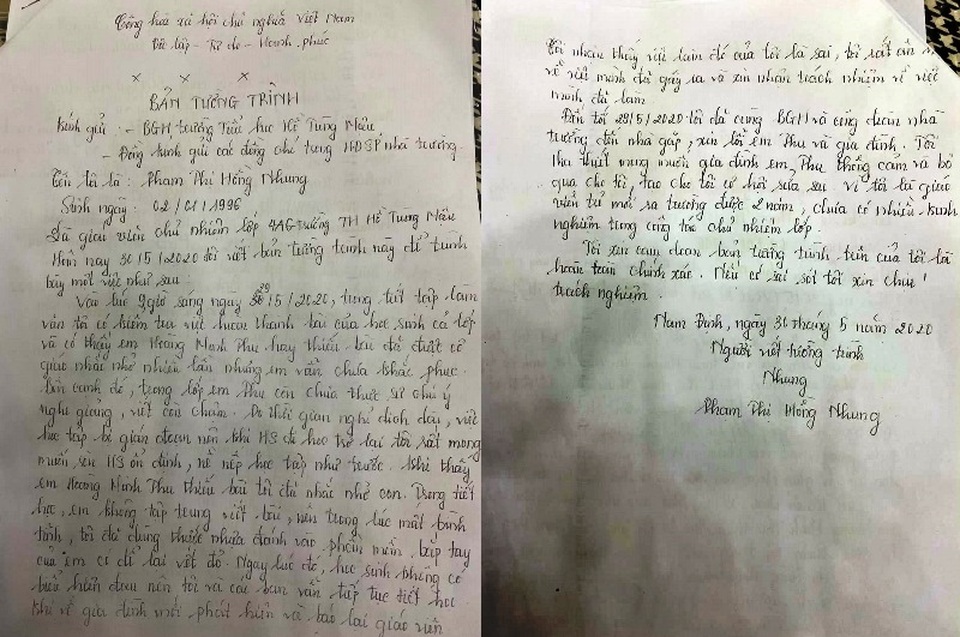 Cộng hòa xã hội chủ nghĩa Việt Nam
Độc lập - Tự do - Hạnh phúc
x x x
BẢN TƯỜNG TRÌNH
Kính gửi : - BGH trường Tiểu học Hồ Tùng Mậu
- Đồng kính gửi các đồng chí trong HĐSP nhà trường.
Tên tôi là : Phạm Thị Hồng Nhung
Sinh ngày : 02 / 01 / 1996
Là giáo viên chủ nhiệm lớp 4AG trường TH Hồ Tùng Mậu
Hôm nay 30 / 5 / 2020 tôi viết bản tường trình này để trình
bày một việc như sau:
Vào lúc 9 giờ sáng ngày 29 / 5 / 2020, trong tiết tập làm
văn tôi có kiểm tra việc hoàn thành bài của học sinh cả lớp
và có thấy em Hoàng Minh Thu hay thiếu bài đã được cô
giáo nhắc nhở nhiều lần nhưng em vẫn chưa khắc phục.
Bên cạnh đó, trong lớp em Thu còn chưa thực sự chú ý
nghe giảng, viết còn chậm. Do thời gian nghỉ dịch dài, việc
học tập bị gián đoạn nên khi HS đi học trở lại tôi rất mong
muốn rèn HS ổn định, nề nếp học tập như trước. Khi thấy
em Hoàng Minh Thu thiếu bài tôi đã nhắc nhở con. Trong tiết
học, em không tập trung viết bài, nên trong lúc mất bình
tĩnh, tôi đã dùng thước nhựa đánh vào phần mềm, bắp tay
của em có để lại vết đỏ. Ngay lúc đó, học sinh không có
biểu hiện đau nên tôi và các bạn vẫn tiếp tục tiết học
khi về gia đình mới phát hiện và báo lại giáo viên
Tôi nhận thấy việc làm đó của tôi là sai, tôi rất ân
về việc mình đã gây ra và xin nhận trách nhiệm về việc
mình đã làm
Đến tối 29/5/2020 tôi đã cùng BGH và công đoàn nhà
trường đến nhà gặp, xin lỗi em Thu và gia đình. Tôi
tha thiết mong muốn gia đình em Thu thông cảm và bỏ
qua cho tôi, tạo cho tôi cơ hội sửa sai vì tôi là giáo
viên trẻ mới ra trường được 2 năm, chưa có nhiều kinh
nghiệm trong công tác chủ nhiệm lớp.
Tôi xin cam đoan bản tường trình trên của tôi là
hoàn toàn chính xác. Nếu có sai sót tôi xin chịu
trách nghiệm.
Nam Định, ngày 30 tháng 5 năm 2020
Người viết tường trình
Nhung
Phạm Thị Hồng Nhung